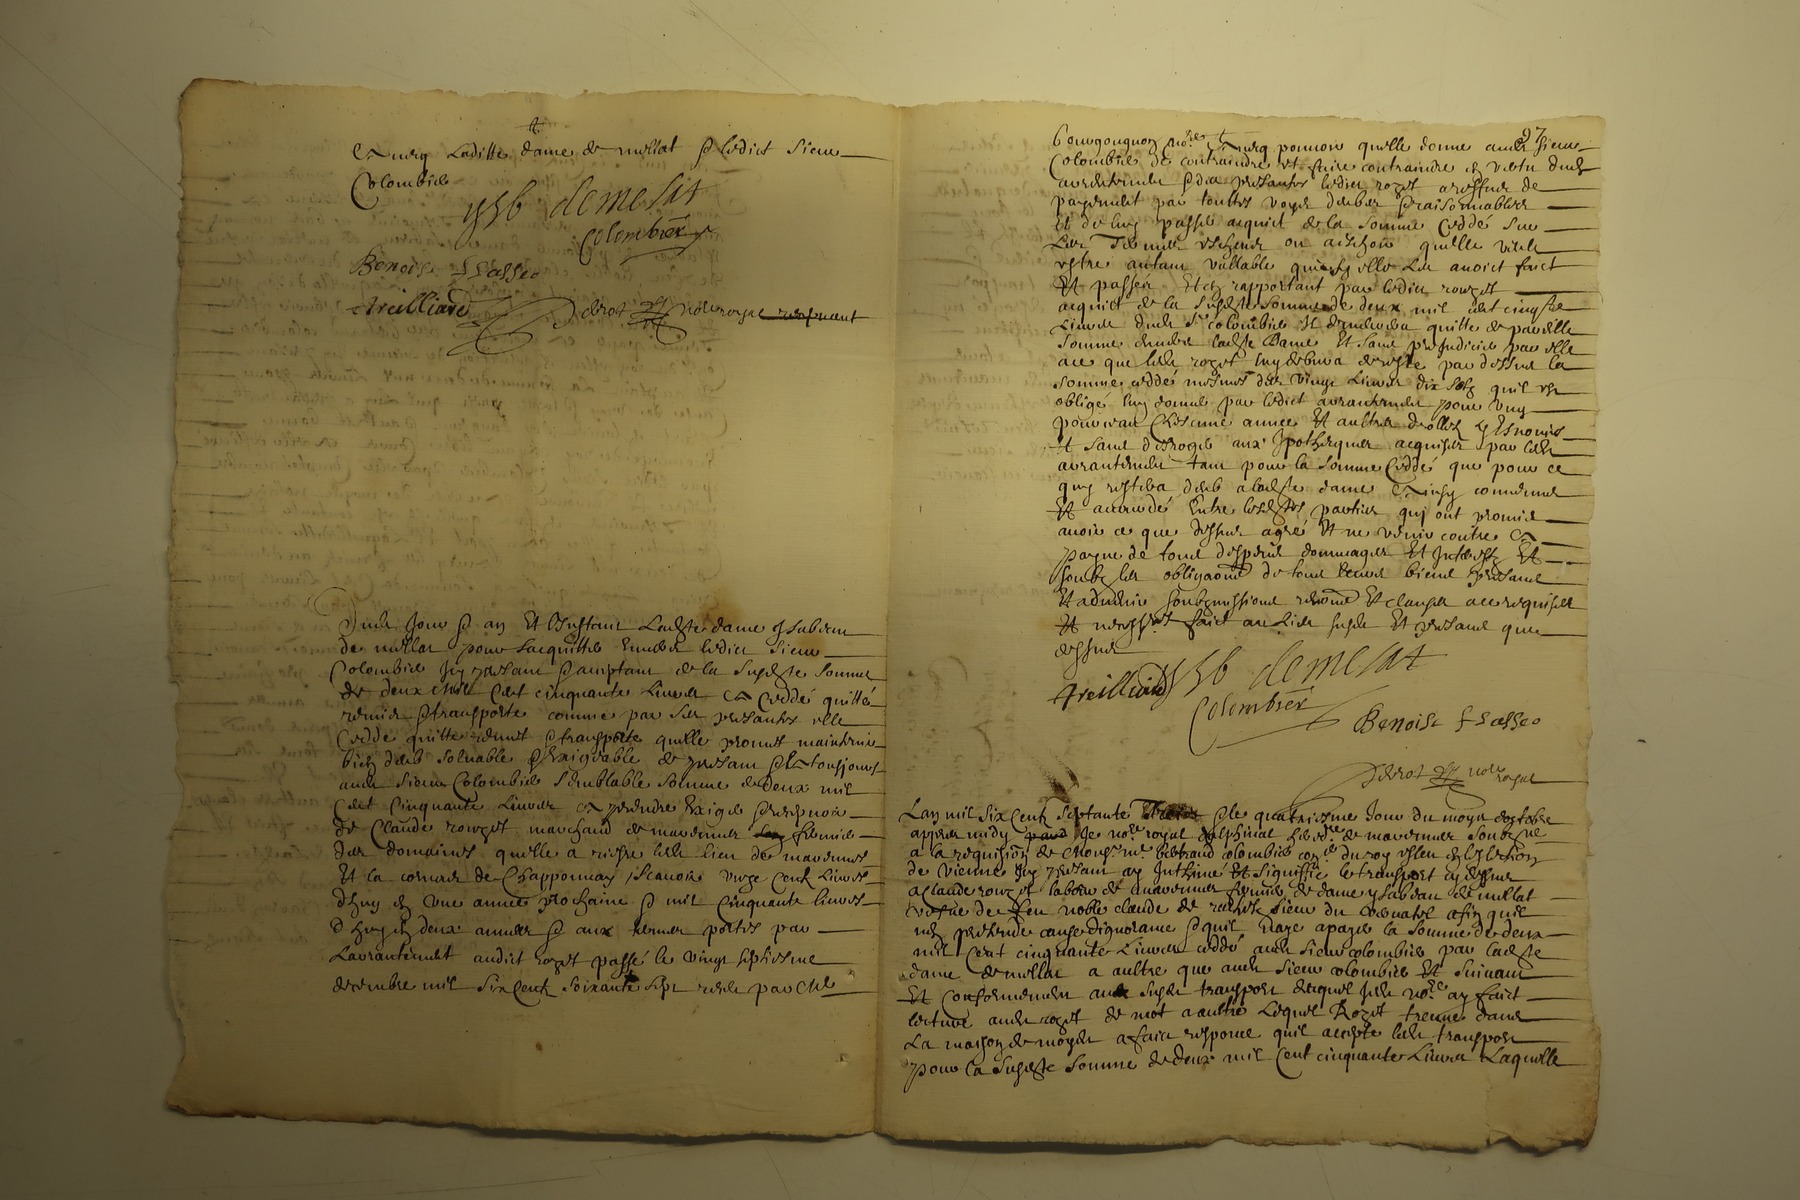 Laditte dame de mellat & ledict sieur
Colombier
ysb demelat
Colombier
Benoist
Treilliard Derot notere royal
Dud jour & an Et Instant Ladte dame ysabeau
de mellat pour sacquitter Envers ledict sieur
Colombier Icy present & acceptant de la susdte somme
de deux mille Cent cinquante Livres a Ceddé quitté
remis & transporté comme par ses presantes elle
Cedde quitte remet & transporte quelle promet maintenir
bien deub solvable & Exigeable de presant & a tousjours
aud sieur Colombier semblable somme de deux mil
Cent Cinquante Livres a prendre Exiger & recepvoir
de Claude rozet marchand de marennes fermier
des domaines quelle a riere led lieu de marennes
Et la commune de Chapponnay, scavoir unze Cent Livres
Dhuy en une année prochaine & mil Cinquante livres
Dhuy en deux années & aux termes portés par
Larrantement audict rozet passé le vingt septiesme
decembre mil six Cent soixante sept receu par Me
97
Bourgougnon no.re pouvoir quelle donne aud sieur
Colombier de contraindre et faire contraindre en vertu dud
arrantement & des presantes ledict rozet
payement par toutes voyes deues & raisonnables
Et de luy passer acquict de la somme Ceddé
quelle veult
estre autant vallable que sy elle les avoict faict
Et passés Et en rapportant par ledict rozet
acquict de la susdte somme de deux mil cent cinqte
Livres dud Sr colombier Il demeurera quitte de pareille
somme envers ladte Dame Et sans prejudicier par elle
a ce que led rozet luy debvra de reste par dessus la
somme ceddé mesmes des vingt Livres dix solz quil est
obligé luy donner par ledict arrantement pour ung
pourceau Chescune année Et aultres
Et sans desroger aux Ipotheques acquises par led
arrantement tant pour la somme Ceddé que pour ce
quy restera deub a ladte dame Ainsy convenu
Et accordé Entre lesdtes parties quy ont promis
avoir ce que dessus agréé Et ne venir contre a
payne de tous despens dommages Et Interestz Et
soubz les obligaons de tous leurs biens presans
Et advenir soubzmissions renonc Et clauses a ce requises
Et necess.res faict au Lieu susdt Et presans que
dessus
Treilliard ysb demelat
Colombier
Benoist
Derot notre royal
Lan mil six Cent septante & le quatriesme Jour du moys doctobre
appres midy Je no.re royal delphinal heredre de marennes soubz.né
a la requision de Monsr me bertrand colombier con.er du roy esleu en lelection
de Vienne Icy presant ay Inthimé Et signiffié le transport cy dessus
a Claude rozet laboureur de marennes fermier de dame ysabeau de mellat
vefve de feu noble claude de sieur du afin quil
nen pretende cause dignorance & quil naye a payer la somme de deux
mil Cent cinquante Livres ceddé aud sieur colombier par ladte
dame de mellat a aultre que aud sieur colombier Et suivant
Et Conformement aud susdt transport duquel Je no.re ay faict
lecture aud rozet de mot a aultre Lequel Rozet treuvé dans
La maison de moyd a faict responce quil accepte led transport
pour la susdte somme de deux mil Cent cinquante Livres Laquelle